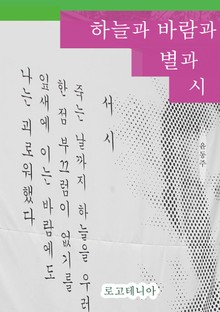 하늘과 바람과
별과
시
윤동주
서시
죽는 날까지 하늘을 우러
한 점 부끄럼이 없기를
잎새에 이는 바람에도
나는 괴로워했다
로고테니아